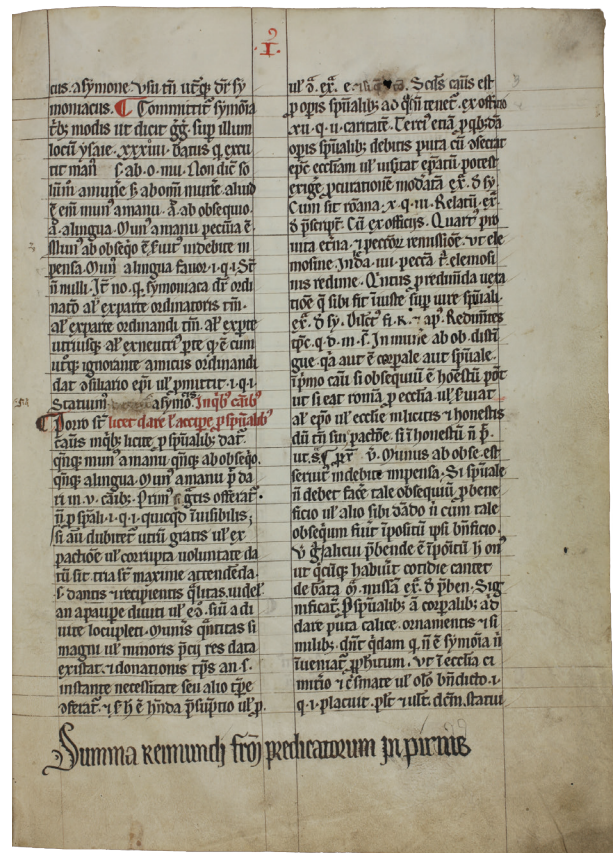 .I.
cus. a symone. usu tn̄ utq̄ dr̄ sy
moniacus. Committit̄ symōia
tb; modis ut dicit gḡ. sup illum
locū ysaie. xxxiii. batus q̄ excu
tit man̄ s. ab. o. mu. Non dic̄ so
lū m̄ a mun̄e s; ab om̄i mun̄e. aliud
ē em̄ mun̄ a manu. ā. ab obsequio.
ā. a lingua. Mun̄ a manu pecūia ē.
Mun̄ ab obseq̄o ē s̄uit̄ indebite in
pensa. Mun̄ a lingua fauor. i. q. i. St̄
n̄ nulli. It̄ no. q. symoniaca dr̄ ordi
natō al̄ ex parte ordinatoris tm̄.
al̄ ex parte ordinandi tm̄. al̄ ex pte
utriusq; al̄ ex neutri pte q̄ ē cum
utq̄ ignorante amicus ordinandi
dat ɔsiliario ep̄i ul̄ pmittit. i. q. i.
Statuim̄ a symo. In qb; cāib;
Porro st̄ licet dare ul̄ accipe p spūalib;
cāuis in qb; licite p spūalib; dat̄.
q̄nq; mun̄ a manu q̄nq; ab obseq̄o.
q̄nq; a lingua. Mun̄ a manu p̄ da
ri in. v. cāib;. Prim̄ s. gͣtis offerat̄.
n̄ p spāli. i. q. i. quicq̄d īuisibilis;
si aū dubitet̄ utrū gratis ul̄ ex
pactiōe ul̄ corrupta uoluntate da
tū sit. tria st̄ maxime attendēda.
s. dantis et recipientis q̄litas. uidel̄.
an a paupe diuiti ul̄ eɔ̄. siū a di
uite locupleti. Mun̄is q̄ntitas si
magni ul̄ minoris p̄cij res data
existat. et donationis tp̄s an. s.
instante necessitate seu alio tp̄e
offerat̄. et s; h̄ ē h̄nda p̄suptio ul̄ p.
ul̄ ɔ̄. ex̄. e. Scd̄s cāus est
p opis spūalib; ad q̄ sn̄ tenet̄. ex offitio
xii. q. ii. caritatē. Terti etiā p qb;dā
opis spūalib; debitis puta cū ɔsecrat
ep̄c ecc̄liam ul̄ uisitat ep̄atū potest
erige pcurationē modatā ex̄. d̄ sy
Cum sit romana. x. q. iii. Relatū. ex̄.
d̄ p̄script. Cū ex officijs. Quart̄ pro
uita et̄na. et peccōr remissiōe. ut ele
mosine. In d̄a. iii. pecc̄a t̄. elemosi
nis redime. Quitus p redimēda uexa
tiōe q̄ sibi fit īiuste sup iure spūali.
ex̄. d̄ sy. Dilect̄ fi. R. et ap̄. Redim̄tes
tp̄c. q. d. m. s. In mun̄e ab ob. distī
gue. q̄a aut ē corpale aut spūale.
ī pmo cāu si obsequiū ē hoestū pōt
ut si eat romā p ecc̄lia ul̄ s̄uiat
al̄ ep̄o ul̄ ecc̄lie in licitis et honestis
dū tn̄ sin̄ pactōe. si īhonestū n̄ p̄.
ut. s. p. v̄. Munus ab obse. est
seruit̄ indebite inpensa. Si spūale
n̄ debet face tale obsequiū p bene
ficio ul̄ alio sibi dādo n̄ cum tale
obseq̄um fiūt īpositū ipsi bn̄ficio.
v̄ ḡ alicui p̄bende ē īpoitū h on̄
ut q̄cūq; habuit cotidie cantet
de b̄ata v̄. missā ex̄. d̄ p̄ben. Sig
nificat̄. P spūalib; ā corpalib; ad
dare puta calice. ornamentis et si
milib; dn̄t q̄dam q. n̄ ē symōia n̄
īueniat̄ phitum. Ut ī ecclia ci
mitio et c̄smate ul̄ oleo bn̄dicto. i.
q. i. placuit. plt̄. et ult̄. dc̄m. statui
Summa Reimundi fr̄m predicatorum in pirnis